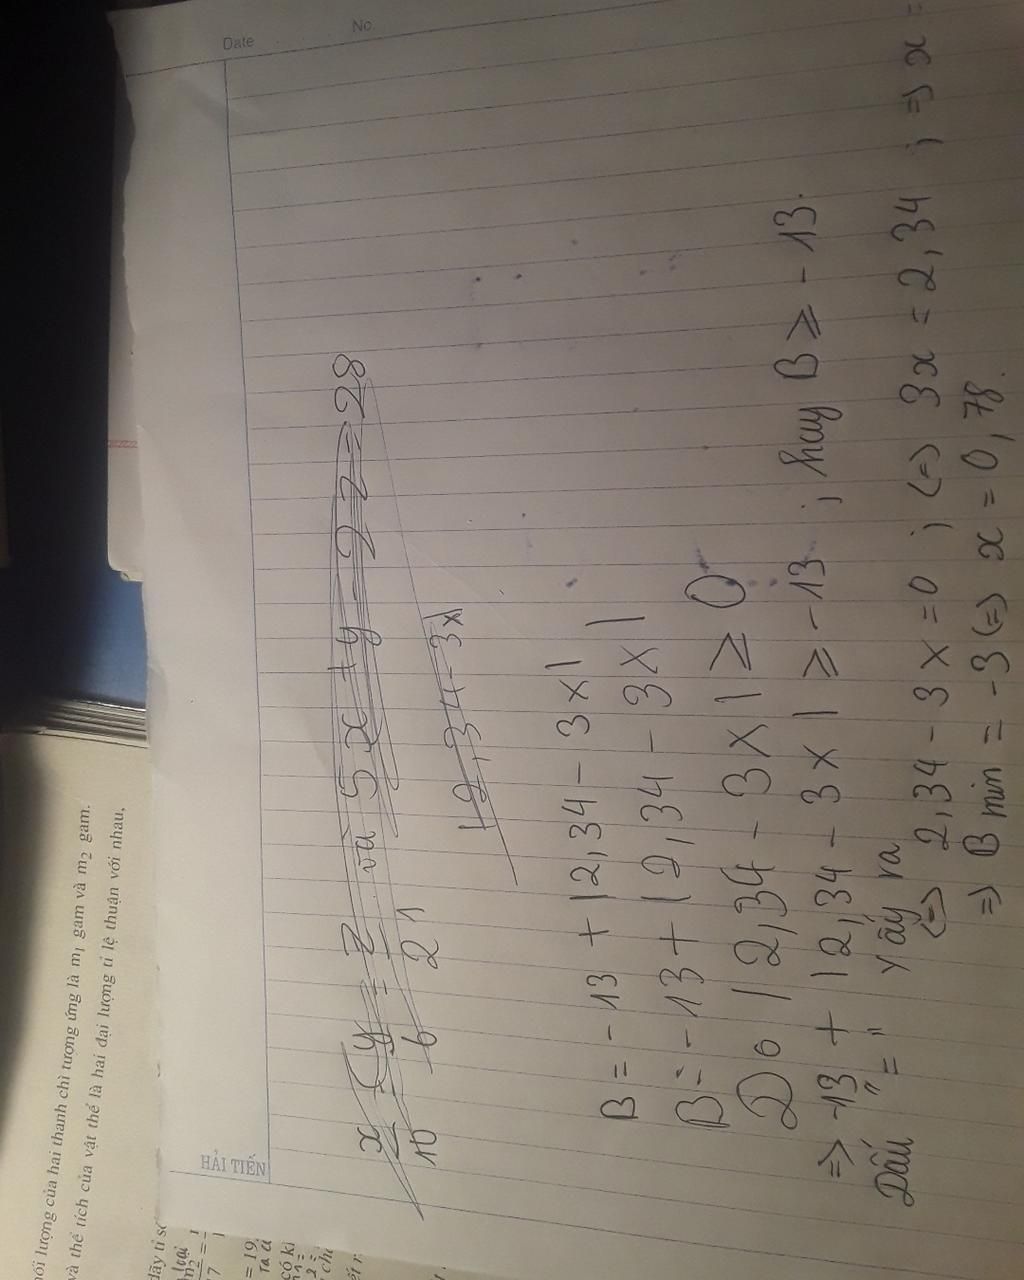 ối lượng của hai thanh chì tương ứng là m₁ gam và m₂ gam.
và thể tích của vật thể là hai đại lượng tỉ lệ thuận với nhau,
dãy tỉ số
Date No
HẢI TIẾN
x/10 = y/6 = z/21 và 5x + y - 2z = 28
|2,34 - 3x|
B = -13 + |2,34 - 3x|
B = -13 + |2,34 - 3x|
Do |2,34 - 3x| ≥ 0
=> -13 + |2,34 - 3x| ≥ -13 ; hay B ≥ -13.
Dấu "=" xảy ra
<=> 2,34 - 3x = 0 ; <=> 3x = 2,34 ; => x =
=> B min = -3 <=> x = 0,78.